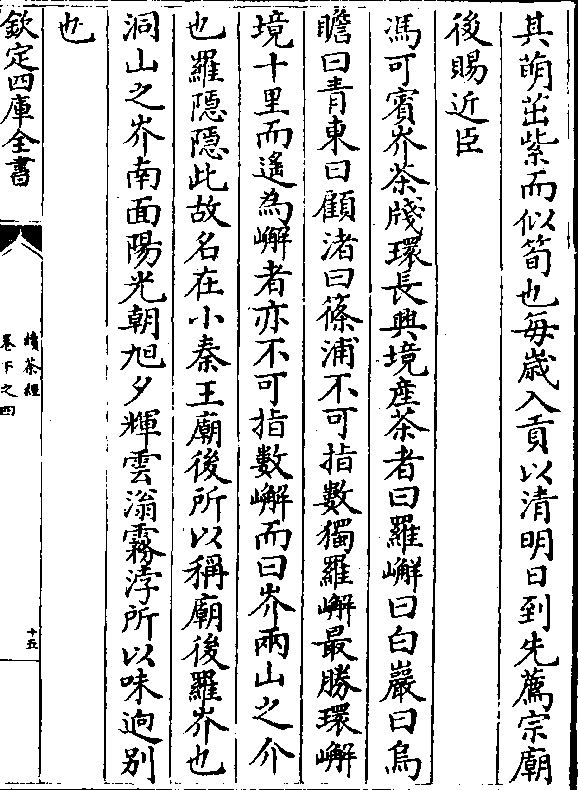 其萌茁紫而似筍也每歳入貢以清明日到先薦宗廟
後賜近臣
馮可賓岕茶牋環長興境産茶者曰羅嶰曰白巖曰烏
瞻曰青東曰顧渚曰篠浦不可指數獨羅嶰最勝環嶰
境十里而遙為嶰者亦不可指數嶰而曰岕兩山之介
也羅隠隠此故名在小秦王廟後所以稱廟後羅岕也
洞山之岕南面陽光朝旭夕輝雲滃霧浡所以味逈别
也
欽定四庫全書
續茶經
卷下之四
十五